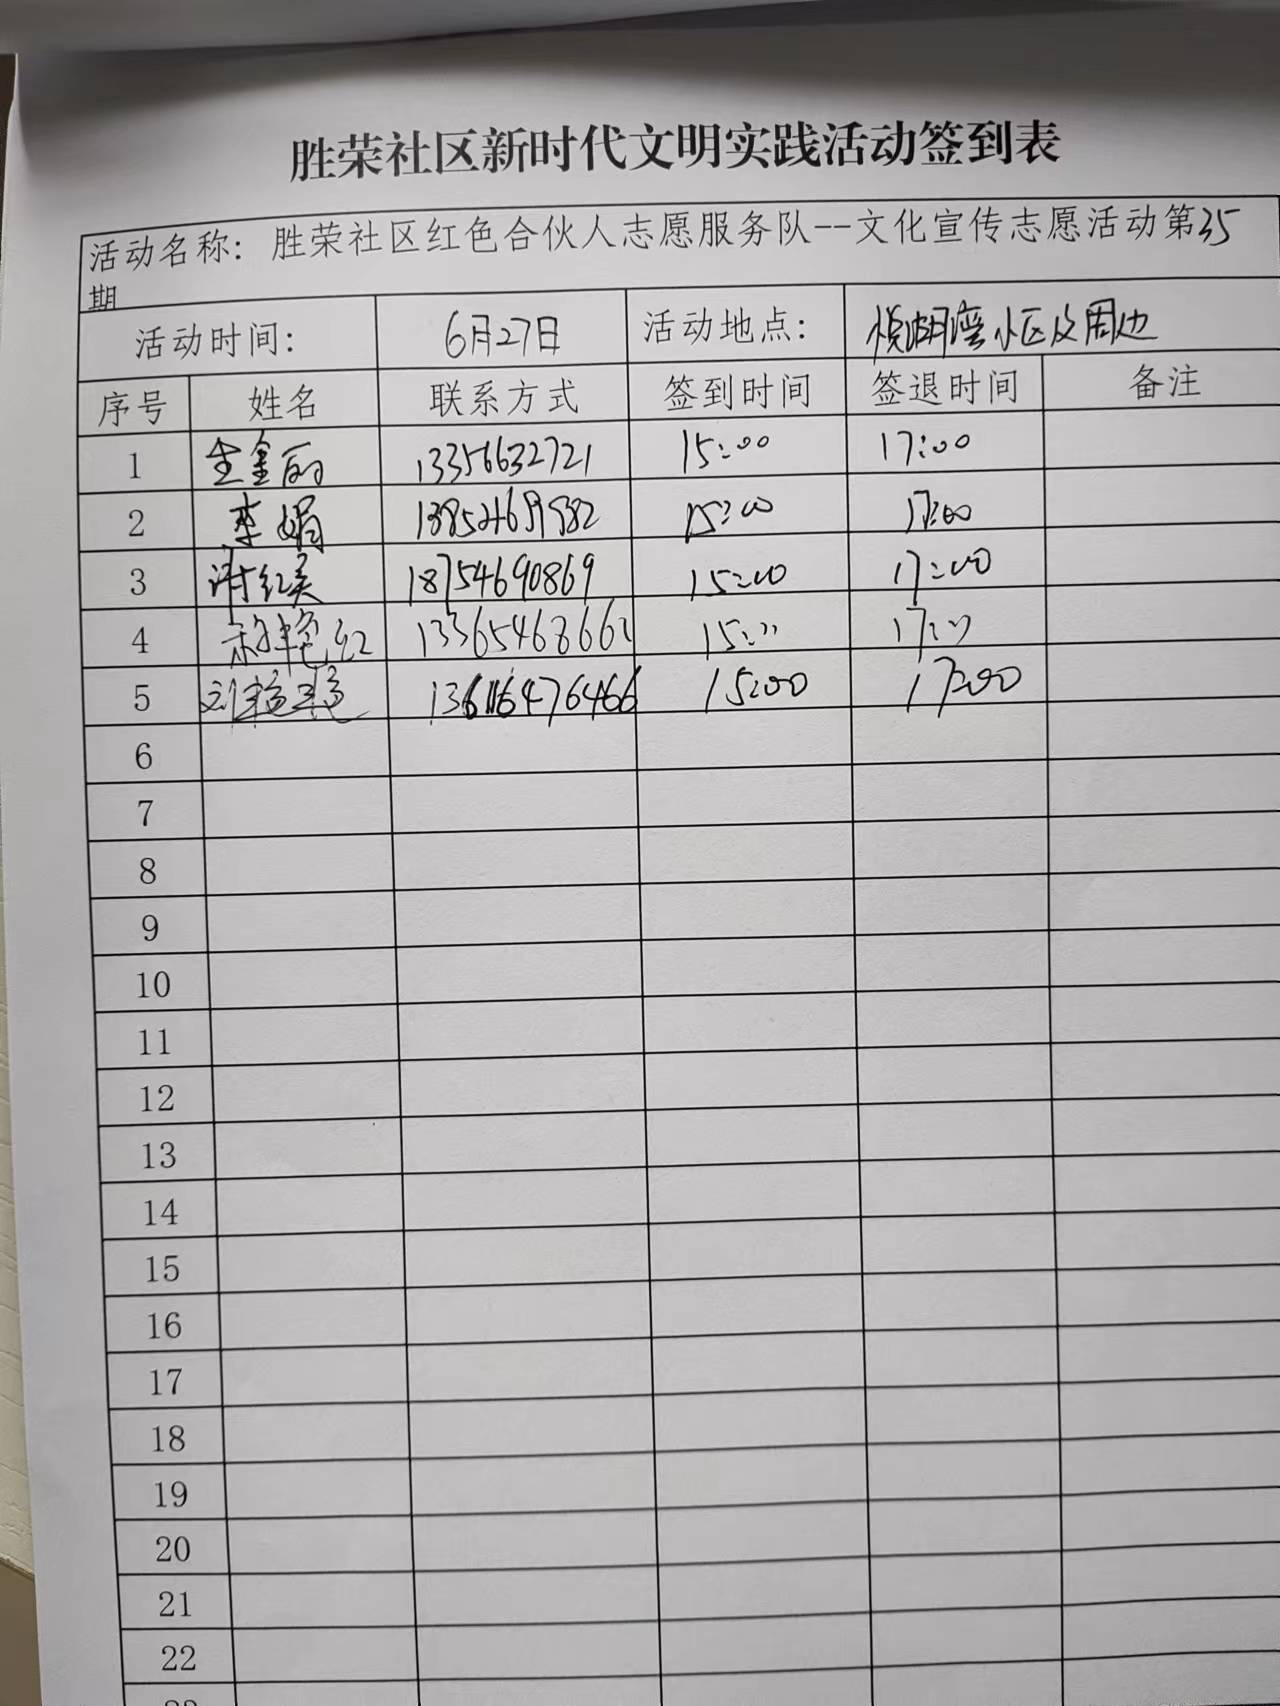 胜荣社区新时代文明实践活动签到表
活动名称: 胜荣社区红色合伙人志愿服务队--文化宣传志愿活动第35
期
活动时间: 6月27日 活动地点: 悦湖湾小区及周边
序号 姓名 联系方式 签到时间 签退时间 备注
1 金丽 13356632721 15:00 17:00
2 李娟 15:00 17:00
3 谢红英 18754690869 15:00 17:00
4 艳红 13365468662 15:〃 17:〃
5 刘 15:00 17:00
6
7
8
9
10
11
12
13
14
15
16
17
18
19
20
21
22